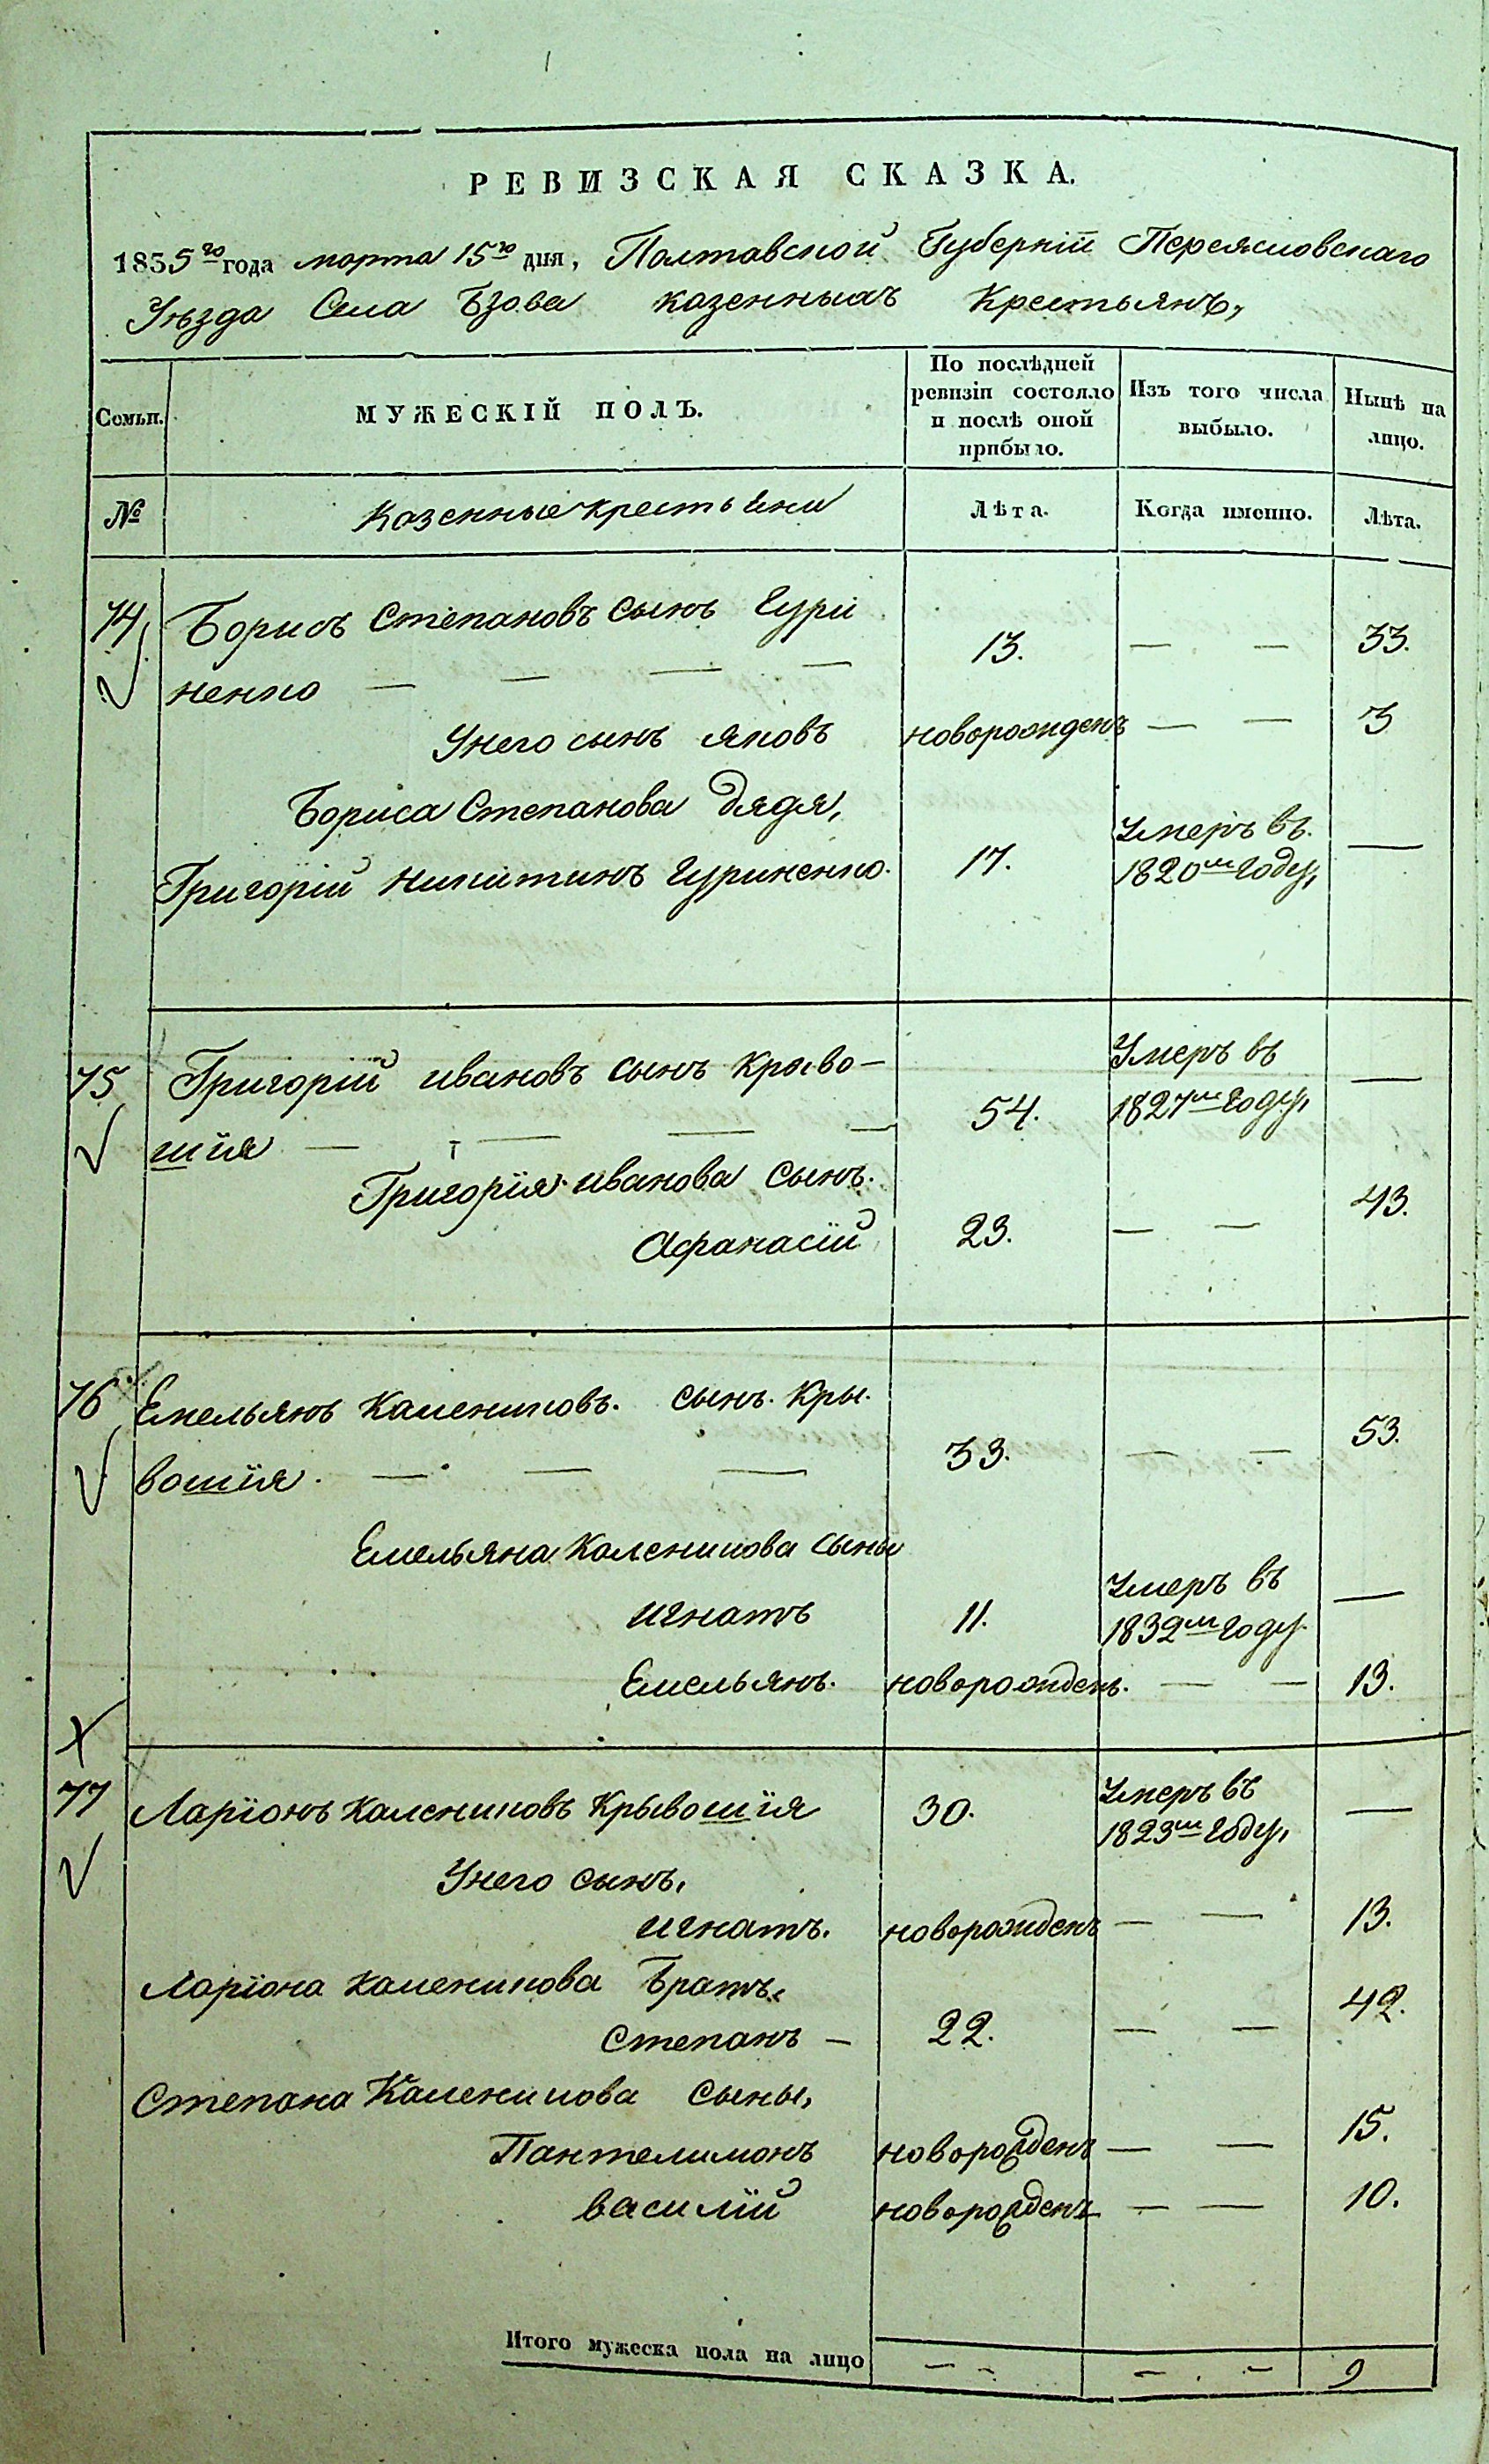 РЕВИЗСКАЯ СКАЗКА.
1835го года марта 15го дня, Полтавской Губерніи Переясловскаго
Уѣзда Села Бзова казенныхъ Крестьянъ,
Семьи.
МУЖЕСКІЙ ПОЛЪ.
По послѣдней
ревизіи состояло
и послѣ оной
прибыло.
Изъ того числа
выбыло.
Нынѣ на
лицо.
№
Казенные крестьяни
Лѣта.
Когда именно.
Лѣта.
74 Борисъ Степановъ сынъ Гури
ненко — — — — 13. — — 33.
Унего сынъ яковъ новорожденъ — — 3
Бориса Степанова дядя,
Григорій Никитинъ Гуриненко. 17. Умеръ въ 1820м году, —
75 Григорій ивановъ сынъ Крыво-
шія — — — — 54. Умеръ въ 1827м году, —
Григорія иванова сынъ.
Афанасій 23. — — 43.
76 Емельянъ Калениковъ. сынъ. Кры.
вошія. — — — 33. — — 53.
Емельяна Каленикова сыны
игнатъ 11. Умеръ въ 1832м году. —
Емельянъ. новорожденъ. — — 13.
77 Ларіонъ Калениковъ Крывошія 30. Умеръ въ 1823м году, —
Унего сынъ,
игнатъ. новорожденъ — — 13.
Ларіона Каленикова Братъ,
Степанъ — 22. — — 42.
Степана Каленикова сыны,
Пантелимонъ новорожденъ — — 15.
василій новорожденъ — — 10.
Итого мужеска пола на лицо — — — — 9